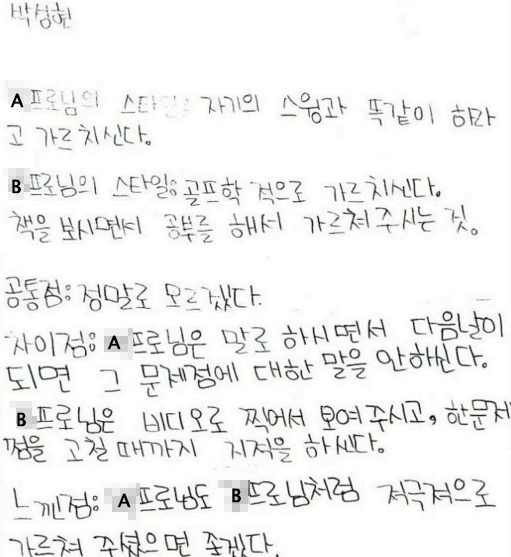 박성현
A프로님의 스타일: 자기의 스윙과 똑같이 하라
고 가르치신다.
B프로님의 스타일: 골프학 적으로 가르치신다.
책을 보시면서 공부를 해서 가르쳐 주시는 것.
공통점: 정말로 모르겠다.
차이점: A프로님은 말로 하시면서 다음날이
되면 그 문제점에 대한 말을 안하신다.
B프로님은 비디오로 찍어서 보여주시고, 한문제
점을 고칠 때까지 지적을 하신다.
느낀점: A프로님도 B프로님처럼 적극적으로
가르쳐 주셨으면 좋겠다.